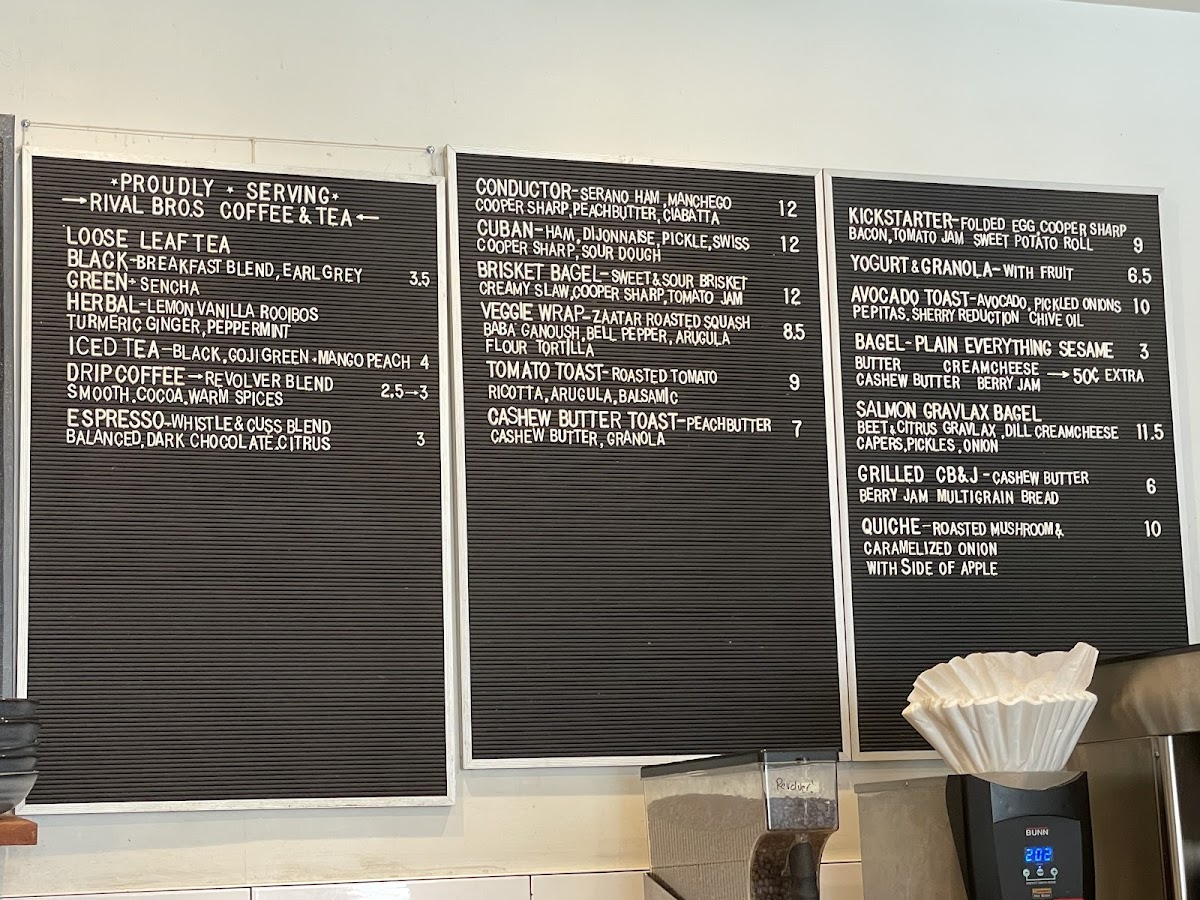 ★PROUDLY ★ SERVING★
→RIVAL BROS COFFEE & TEA←
LOOSE LEAF TEA
BLACK-BREAKFAST BLEND, EARL GREY 3.5
GREEN- SENCHA
HERBAL-LEMON VANILLA ROOIBOS
TURMERIC GINGER, PEPPERMINT
ICED TEA-BLACK, GOJI GREEN. MANGO PEACH 4
DRIP COFFEE→REVOLVER BLEND
SMOOTH, COCOA, WARM SPICES 2.5→3
ESPRESSO-WHISTLE & CUSS BLEND
BALANCED, DARK CHOCOLATE, CITRUS 3
CONDUCTOR-SERANO HAM, MANCHEGO
COOPER SHARP, PEACHBUTTER, CIABATTA 12
CUBAN-HAM, DIJONNAISE, PICKLE, SWISS
COOPER SHARP, SOUR DOUGH 12
BRISKET BAGEL-SWEET & SOUR BRISKET
CREAMY SLAW, COOPER SHARP, TOMATO JAM 12
VEGGIE WRAP-ZAATAR ROASTED SQUASH
BABA GANOUSH, BELL PEPPER, ARUGULA 8.5
FLOUR TORTILLA
TOMATO TOAST-ROASTED TOMATO 9
RICOTTA, ARUGULA, BALSAMIC
CASHEW BUTTER TOAST-PEACHBUTTER 7
CASHEW BUTTER, GRANOLA
KICKSTARTER-FOLDED EGG, COOPER SHARP
BACON, TOMATO JAM SWEET POTATO ROLL 9
YOGURT & GRANOLA-WITH FRUIT 6.5
AVOCADO TOAST-AVOCADO, PICKLED ONIONS 10
PEPITAS. SHERRY REDUCTION CHIVE OIL
BAGEL-PLAIN EVERYTHING SESAME 3
BUTTER CREAMCHEESE →50¢ EXTRA
CASHEW BUTTER BERRY JAM
SALMON GRAVLAX BAGEL
BEET & CITRUS GRAVLAX, DILL CREAMCHEESE 11.5
CAPERS, PICKLES, ONION
GRILLED CB&J-CASHEW BUTTER 6
BERRY JAM MULTIGRAIN BREAD
QUICHE-ROASTED MUSHROOM & 10
CARAMELIZED ONION
WITH SIDE OF APPLE
Revolver
BUNN
202